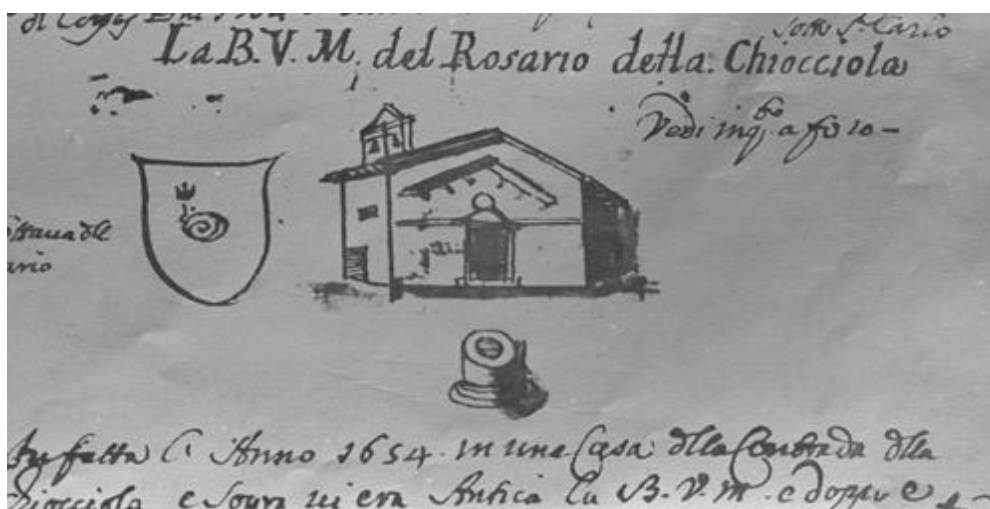 sotto S. Carlo
La B. V. M. del Rosario della Chiocciola
Vedi inq. a fo 10 -
ario
fu fatta l' Anno 1654 in une Casa dlla Contrada dlla
Chiocciola e sovra vi era Antica la B. V. M. e doppo e